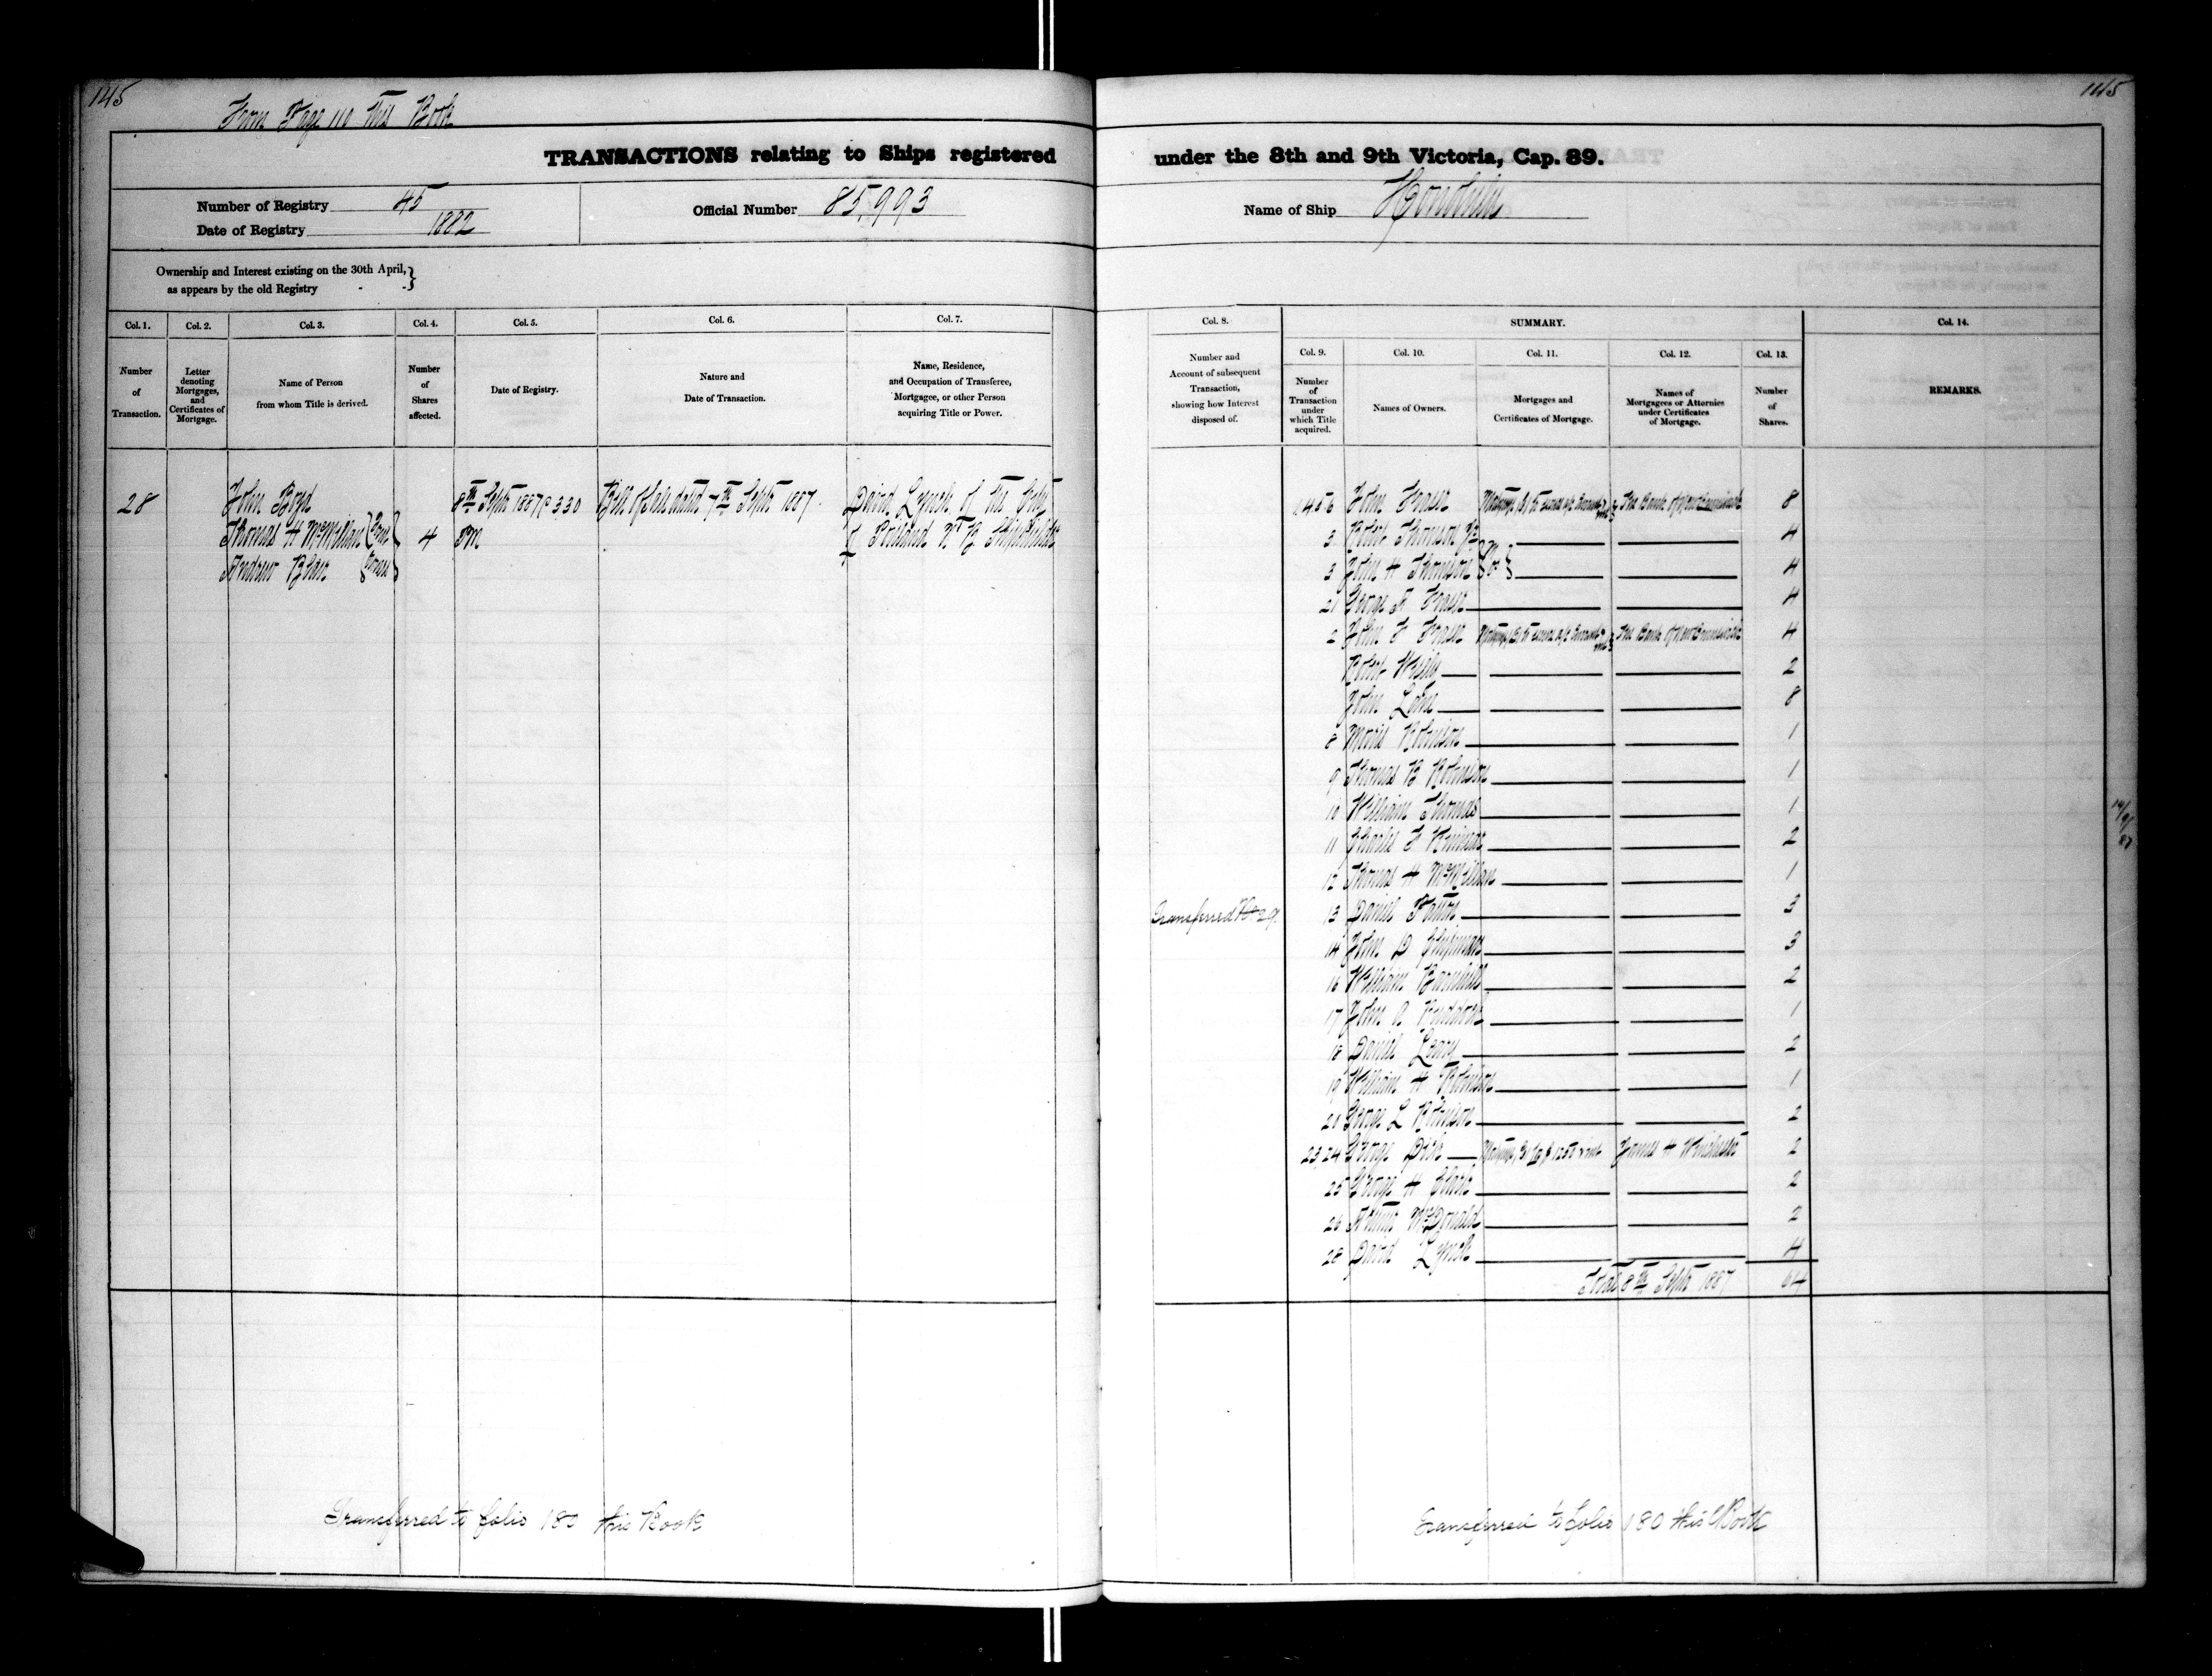 145
From Page 110 this Book
TRANSACTIONS relating to Ships registered
Number of Registry 45
Date of Registry 1882
Official Number 85,993
Ownership and Interest existing on the 30th April,
as appears by the old Registry - -
Col. 1. Col. 2. Col. 3. Col. 4. Col. 5. Col. 6. Col. 7.
Number of Transaction.
Letter denoting Mortgages, and Certificates of Mortgage.
Name of Person from whom Title is derived.
Number of Shares affected.
Date of Registry.
Nature and Date of Transaction.
Name, Residence, and Occupation of Transferee, Mortgagee, or other Person acquiring Title or Power.
28 John Boyd 8th Sept 1887 @ 3.30 Bill of Sale dated 7th Sept 1887. David Lynch of the City
Thomas H McMillan 4 PM of Portland N B Shipbuilder
Andrew Blair
Transferred to folio 180 this Book
145
under the 8th and 9th Victoria, Cap. 89.
Name of Ship Honolulu
Col. 8. SUMMARY. Col. 14.
Col. 9. Col. 10. Col. 11. Col. 12. Col. 13.
Number and Account of subsequent Transaction, showing how Interest disposed of.
Number of Transaction under which Title acquired.
Names of Owners.
Mortgages and Certificates of Mortgage.
Names of Mortgagees or Attornies under Certificates of Mortgage.
Number of Shares.
REMARKS.
1.4.5.6 John Fraser The Bank of New Brunswick 8
3 Robert Thomson Jr 4
3 John H Thomson 4
21 George F Fraser 4
2 John F Fraser The Bank of New Brunswick 4
Robert 2
John Lane 8
8 Morris Robinson 1
9 Thomas B Robinson 1
10 William Thomas 1
11 Charles F Kinnear 2
12 Thomas H McMillan 1
Transferred No 29. 13 Daniel Patton 3
14 John D Chipman 3
16 William Barnhill 2
17 John A Ruddock 1
18 Daniel Leavy 2
19 William H Robinson 1
20 George L Robinson 2
23,24 George Dick 2
25 George H Clark 2
26 Arthur McDonald 2
28 David Lynch 4
Total 8th Sept 1887 64
Transferred to folio 180 this Book